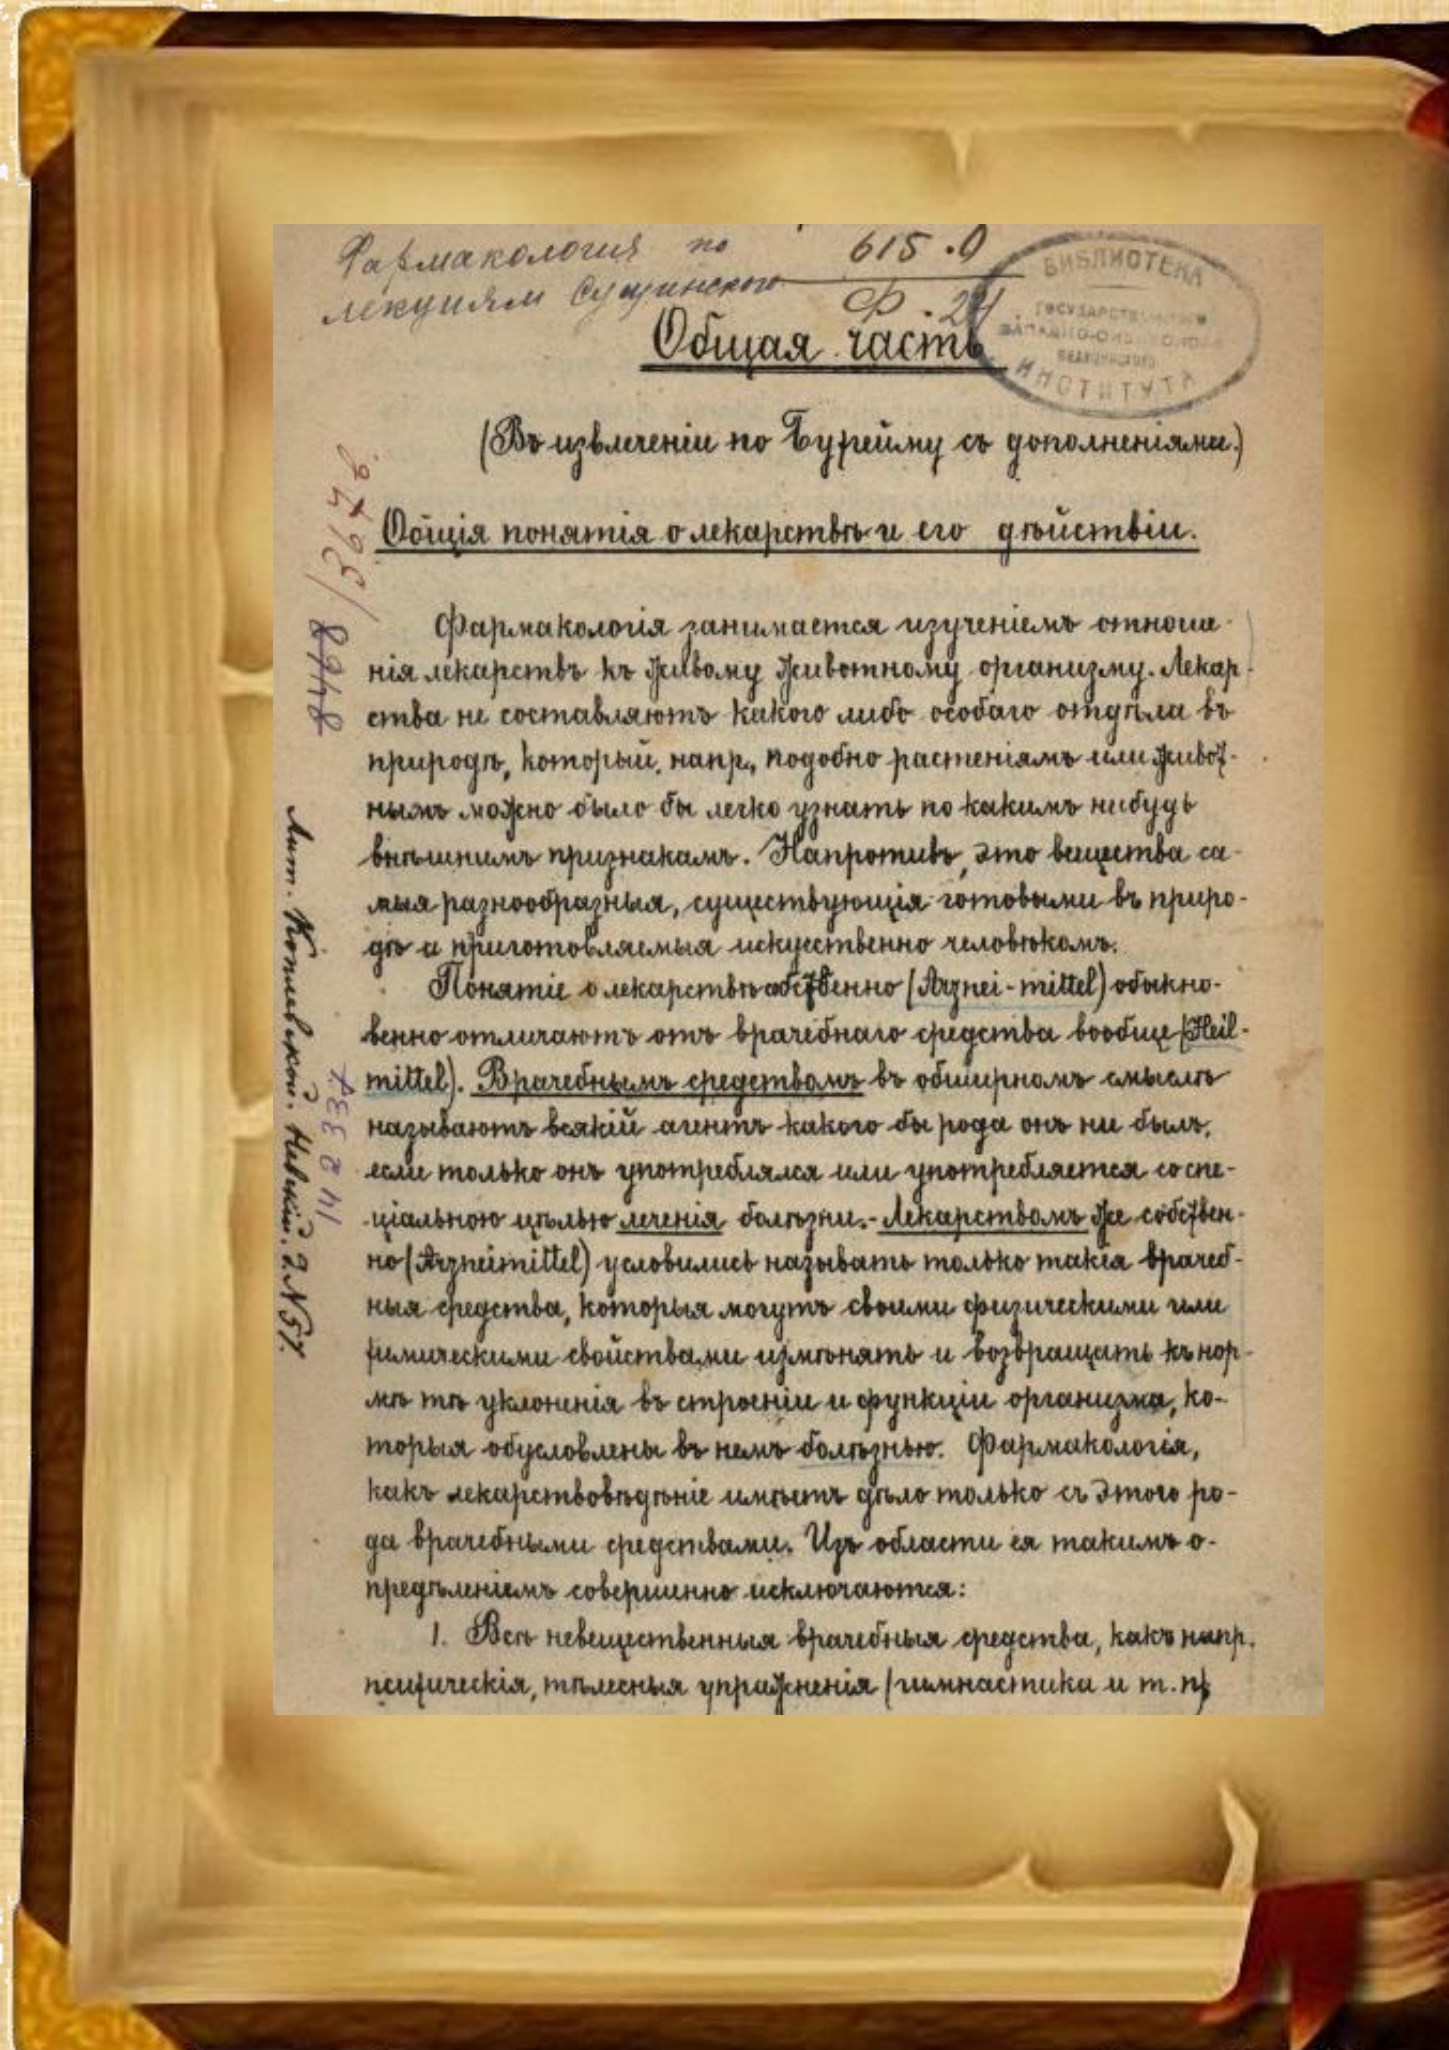 Фармакология по
лекциям Сущинского
615.0
Ф. 24
БИБЛИОТЕКА
ГОСУДАРСТВЕННОГО
ЗАПАДНО-СИБИРСКОГО
МЕДИЦИНСКОГО
ИНСТИТУТА
Общая часть
(Въ извлеченіи по Бухгейму съ дополненіями.)
Общія понятія о лекарствѣ и его дѣйствіи.
Фармакологія занимается изученіемъ отноше-
нія лекарствъ къ живому животному организму. Лекар-
ства не составляютъ какого либо особаго отдѣла въ
природѣ, который, напр., подобно растеніямъ или живот-
нымъ можно было бы легко узнать по какимъ нибудь
внѣшнимъ признакамъ. Напротивъ, это вещества са-
мыя разнообразныя, существующія готовыми въ приро-
дѣ и приготовляемыя искусственно человѣкомъ.
Понятіе о лекарствѣ собственно (Arznei-mittel) обыкно-
венно отличаютъ отъ врачебнаго средства вообще (Heil-
mittel). Врачебнымъ средствомъ въ обширномъ смыслѣ
называютъ всякій агентъ какого бы рода онъ ни былъ,
если только онъ употреблялся или употребляется со спе-
ціальною цѣлью леченія болѣзни.- Лекарствомъ же собствен-
но (Arzneimittel) условились называть только такія врачеб-
ныя средства, которыя могутъ своими физическими или
химическими свойствами измѣнять и возвращать къ нор-
мѣ тѣ уклоненія въ строеніи и функціи организма, ко-
торыя обусловлены въ немъ болѣзнью. Фармакологія,
какъ лекарствовѣдѣніе имѣетъ дѣло только съ этого ро-
да врачебными средствами. Изъ области ея такимъ о-
предѣленіемъ совершенно исключаются:
1. Всѣ невещественныя врачебныя средства, какъ напр.
психическія, тѣлесныя упражненія (гимнастика и т. п)
Лит. Невскій. д. N 51.